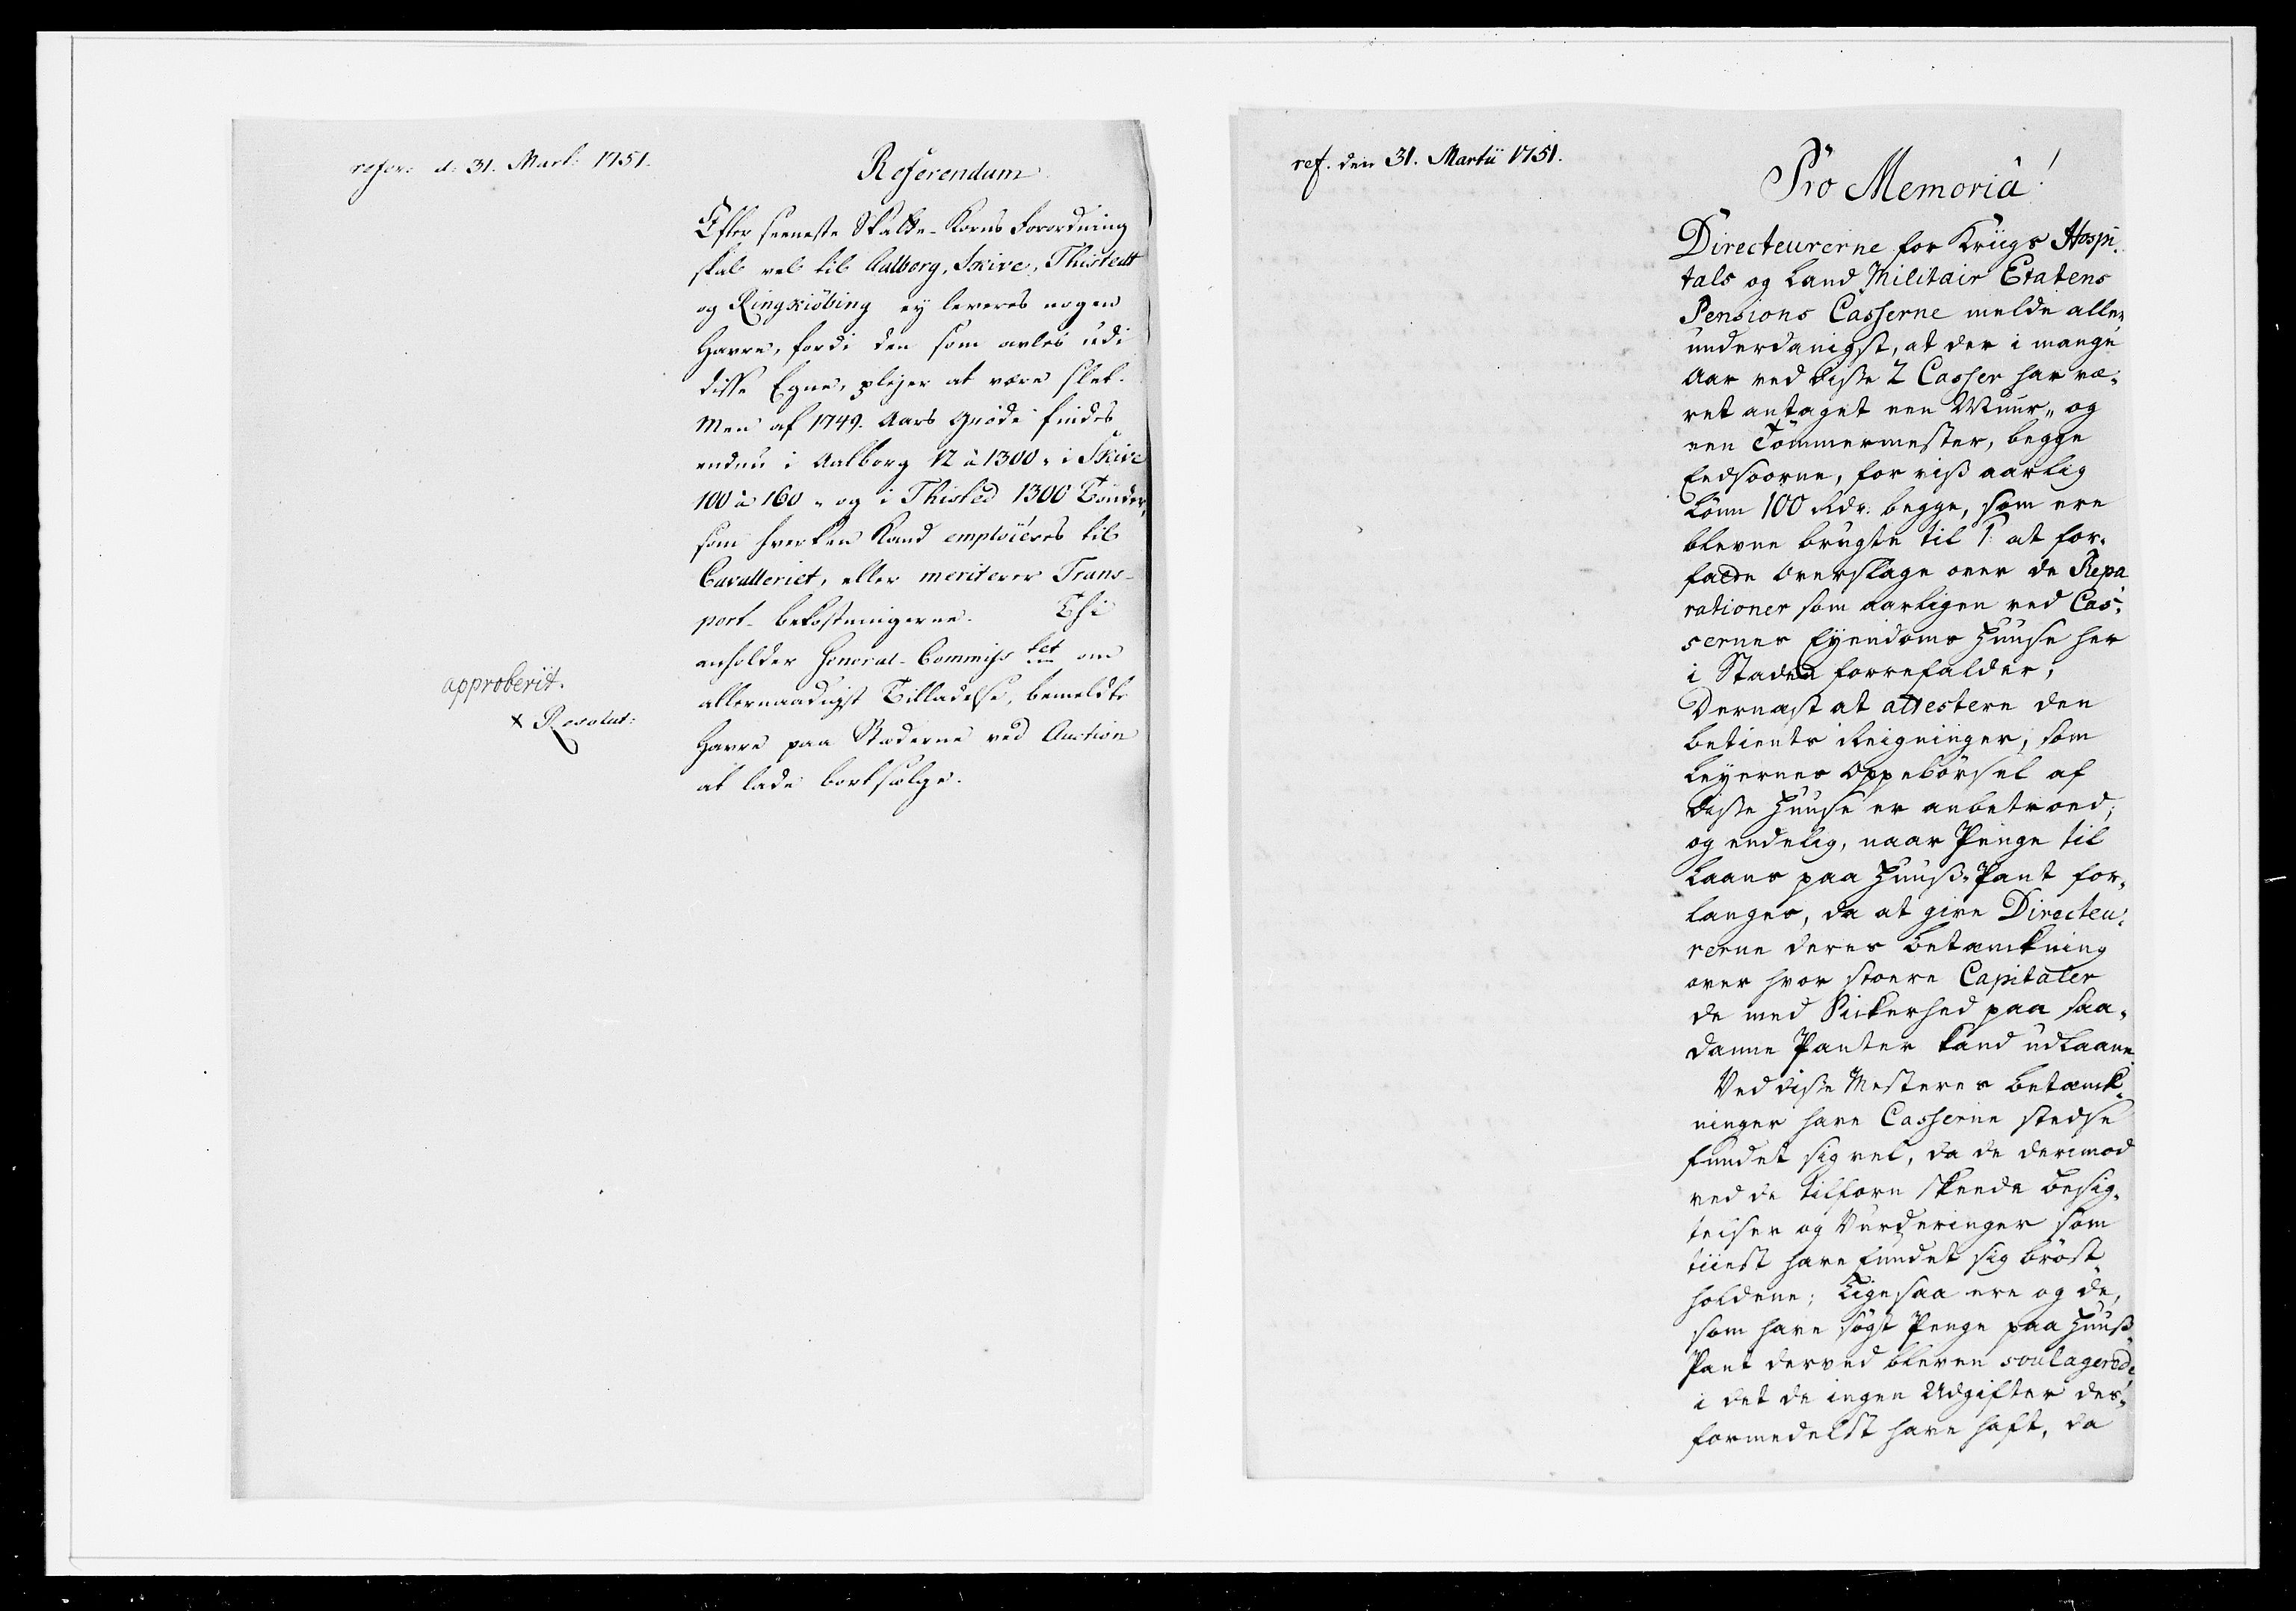 refer: d: 31. Mart: 1751.
Referendum
Efter seeneste Skatte-Korns Forordning
skal vel til Aalborg, Skive, Thistedt
og Ringkiöbing ey leveres nogen
Havre, fordi den som avles udi
disse Egne, plejer at være slet.
Men af 1749. Aars Grøde findes
endnu i Aalborg 12 à 1300, i Skive
100 à 160, og i Thisted 1300 Tønder,
som hverken Kand emploieres til
Cavalleriet, eller meriterer Trans-
port-bekostningerne. Thi
anholder General-Commiss tet om
allernaadigst Tilladelse, bemeldte
Havre paa Stæderne ved Auction
at lade bortsælge.
approberit.
x Resolut:
ref. den 31. Martii 1751.
Pro Memoria!
Directeurerne for Kriigs Hospi-
tals og Land Militair Etatens
Pensions Casserne melde aller,,
underdanigst, at der i mange
Aar ved disse 2 Casser har væ-
ret antaget een Muur,, og
een Tømmermester, begge
Eedsoorne, for viss aarlig
Lønn 100 Rdr. begge, som ere
blevne brugte til 1: at for-
fatte Overslage over de Repa
rationer som aarligen ved Cas-
sernes Eyendoms Huuse her
i Staden forrefalder;
Dernæst at attestere den
betients Reigninger, som
Leyernes Oppebørsel af
disse Huuse er anbetroed;
og endelig, naar Penge til
Laans paa Huuss-Pant for-
langes, da at give Directeu-
rerne deres betænckning
over hvor stoere Capitaler
de med Sickerhed paa saa-
danne Panter kand udlaane.
Ved disse Mesteres betænck-
ninger have Casserne stedse
fundet sig vel, da de derimod
ved de tilforn skeede besig-
telser og Vurderinger som
tiiest have fundet sig brøst-
holdene; Ligesaa ere og de,
som have søgt Penge paa Huuss-
Pant derved bleven soulagerede
i det de ingen Udgifter des-
formedelst have haft, da